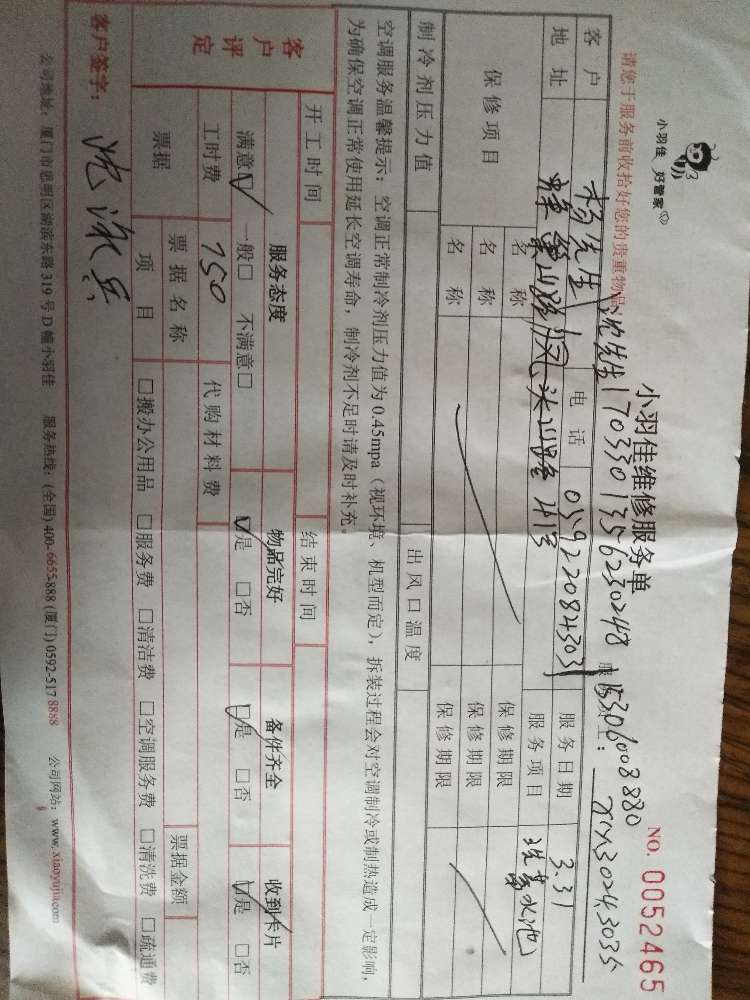 小羽佳 好管家
小羽佳维修服务单
NO. 0052465
请您于服务前收拾好您的贵重物品!
客户 杨先生 沈先生17033013562 30248 15306008880
电话 05922084303
服务日期 3.31
地址 凤头山路41号
服务项目 洗 水池
保修项目
名称 保修期限
名称 保修期限
名称 保修期限
制冷剂压力值 出风口温度
空调服务温馨提示：空调正常制冷剂压力值为0.45mpa（视环境、机型而定），拆装过程会对空调制冷或制热造成一定影响，
为确保空调正常使用延长空调寿命，制冷剂不足时请及时补充。
开工时间 结束时间
客户评定
服务态度 物品完好 备件齐全 收到卡片
满意☑ 一般□ 不满意□ ☑是 □否 ☑是 □否 ☑是 □否
工时费 150 代购材料费
票据 票据名称 票据金额
项目 □搬办公用品 □服务费 □清洁费 □空调服务费 □清洗费 □疏通费
客户签字：
公司地址：厦门市思明区湖滨东路319号D幢小羽佳 服务热线：(全国) 400-6655-888 (厦门) 0592-517 8888 公司网站：www.xiaoyujia.com